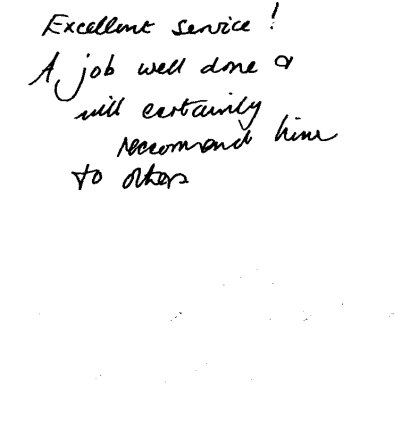 Excellent service!
A job well done &
will certainly
recommend him
to others